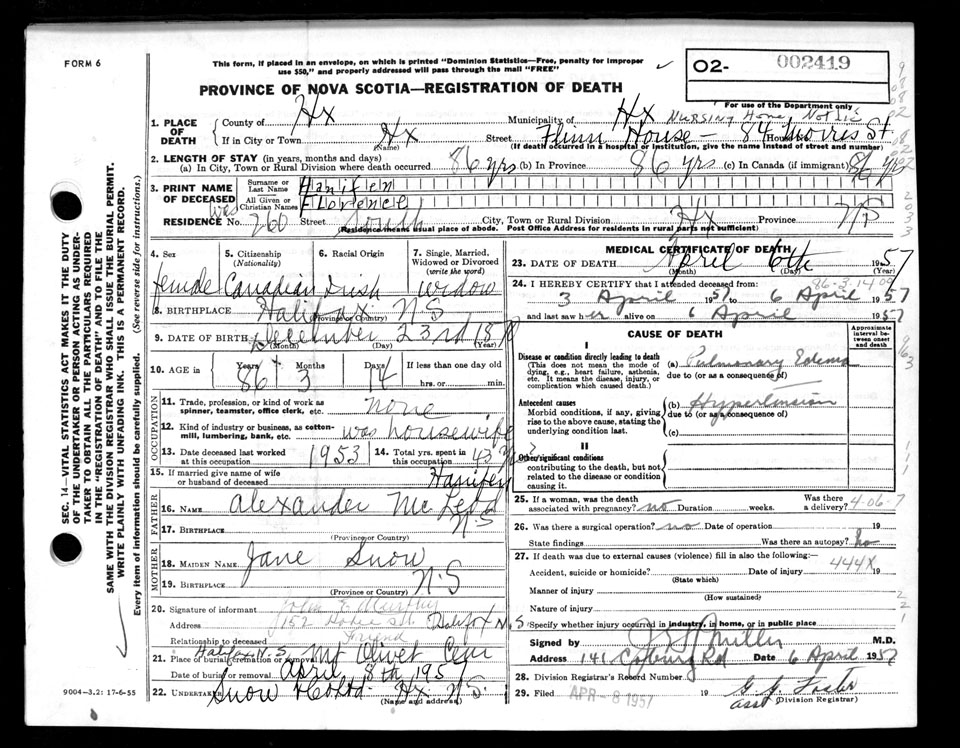 FORM 6
This form, if placed in an envelope, on which is printed "Dominion Statistics—Free, penalty for improper
use $50," and properly addressed will pass through the mail "FREE"
O2- 002419
PROVINCE OF NOVA SCOTIA—REGISTRATION OF DEATH
For use of the Department only
1. PLACE OF DEATH
County of Hx Municipality of Hx Nursing Home
If in City or Town Hx (Name) Street Flinn House — 84 Morris St.
(If death occurred in a hospital or institution, give the name instead of street and number)
2. LENGTH OF STAY (in years, months and days)
(a) In City, Town or Rural Division where death occurred 86 yrs (b) In Province 86 yrs (c) In Canada (if immigrant) 86 yrs
3. PRINT NAME OF DECEASED
Surname or Last Name Hanifen
All Given or Christian Names Florence
RESIDENCE was No. 260 Street South City, Town or Rural Division Hx Province NS
(Residence means usual place of abode. Post Office Address for residents in rural parts not sufficient)
4. Sex female
5. Citizenship (Nationality) Canadian
6. Racial Origin Irish
7. Single, Married, Widowed or Divorced (write the word) widow
8. BIRTHPLACE Halifax N S (Province or Country)
9. DATE OF BIRTH December 23rd 1870
(Month) (Day) (Year)
10. AGE in Years 86 Months 3 Days 14 If less than one day old
hrs. or min.
OCCUPATION
11. Trade, profession, or kind of work as spinner, teamster, office clerk, etc. none
12. Kind of industry or business, as cotton-mill, lumbering, bank, etc. was housewife
13. Date deceased last worked at this occupation 1953 14. Total yrs. spent in this occupation 43
15. If married give name of wife or husband of deceased Hanifen
FATHER
16. NAME Alexander McLeod
17. BIRTHPLACE N S
(Province or Country)
MOTHER
18. MAIDEN NAME Jane Snow
19. BIRTHPLACE N.S
(Province or Country)
20. Signature of informant John E
Address 152 Halifax N.S
Relationship to deceased Friend
21. Place of burial, cremation or removal Halifax N.S. Mt Olivet Cem
Date of burial or removal April 8th 1957
22. UNDERTAKER Snow & Co Ltd. Hx N.S.
(Name and address)
MEDICAL CERTIFICATE OF DEATH
23. DATE OF DEATH April 6th 1957
(Month) (Day) (Year)
24. I HEREBY CERTIFY that I attended deceased from:
3 April 1957 to 6 April 1957
and last saw her alive on 6 April 1957
CAUSE OF DEATH
Approximate interval between onset and death
I
Disease or condition directly leading to death
(This does not mean the mode of dying, e.g., heart failure, asthenia, etc. It means the disease, injury, or complication which caused death.)
(a) Pulmonary Edema
due to (or as a consequence of)
Antecedent causes
Morbid conditions, if any, giving rise to the above cause, stating the underlying condition last.
(b) Hypertension
due to (or as a consequence of)
(c)
II
Other significant conditions
contributing to the death, but not related to the disease or condition causing it.
25. If a woman, was the death associated with pregnancy? no Duration weeks. Was there a delivery? 4-06-7
26. Was there a surgical operation? no Date of operation 19
State findings Was there an autopsy? no
27. If death was due to external causes (violence) fill in also the following:— 444X
Accident, suicide or homicide? Date of injury 19
(State which)
Manner of injury
(How sustained)
Nature of injury
Specify whether injury occurred in industry, in home, or in public place
Signed by Miller M.D.
Address 141 Coburg Rd Date 6 April 1957
28. Division Registrar's Record Number
29. Filed APR -8 1957 19 G. J. Foster
asst (Division Registrar)
9004-3.2: 17-6-55
SEC. 14—VITAL STATISTICS ACT MAKES IT THE DUTY
OF THE UNDERTAKER OR PERSON ACTING AS UNDER-
TAKER TO OBTAIN ALL THE PARTICULARS REQUIRED
IN THE "REGISTRATION OF DEATH" AND TO FILE IT
WITH THE DIVISION REGISTRAR WHO SHALL ISSUE THE BURIAL PERMIT.
WRITE PLAINLY WITH UNFADING INK. THIS IS A PERMANENT RECORD.
Every item of information should be carefully supplied. (See reverse side for instructions.)